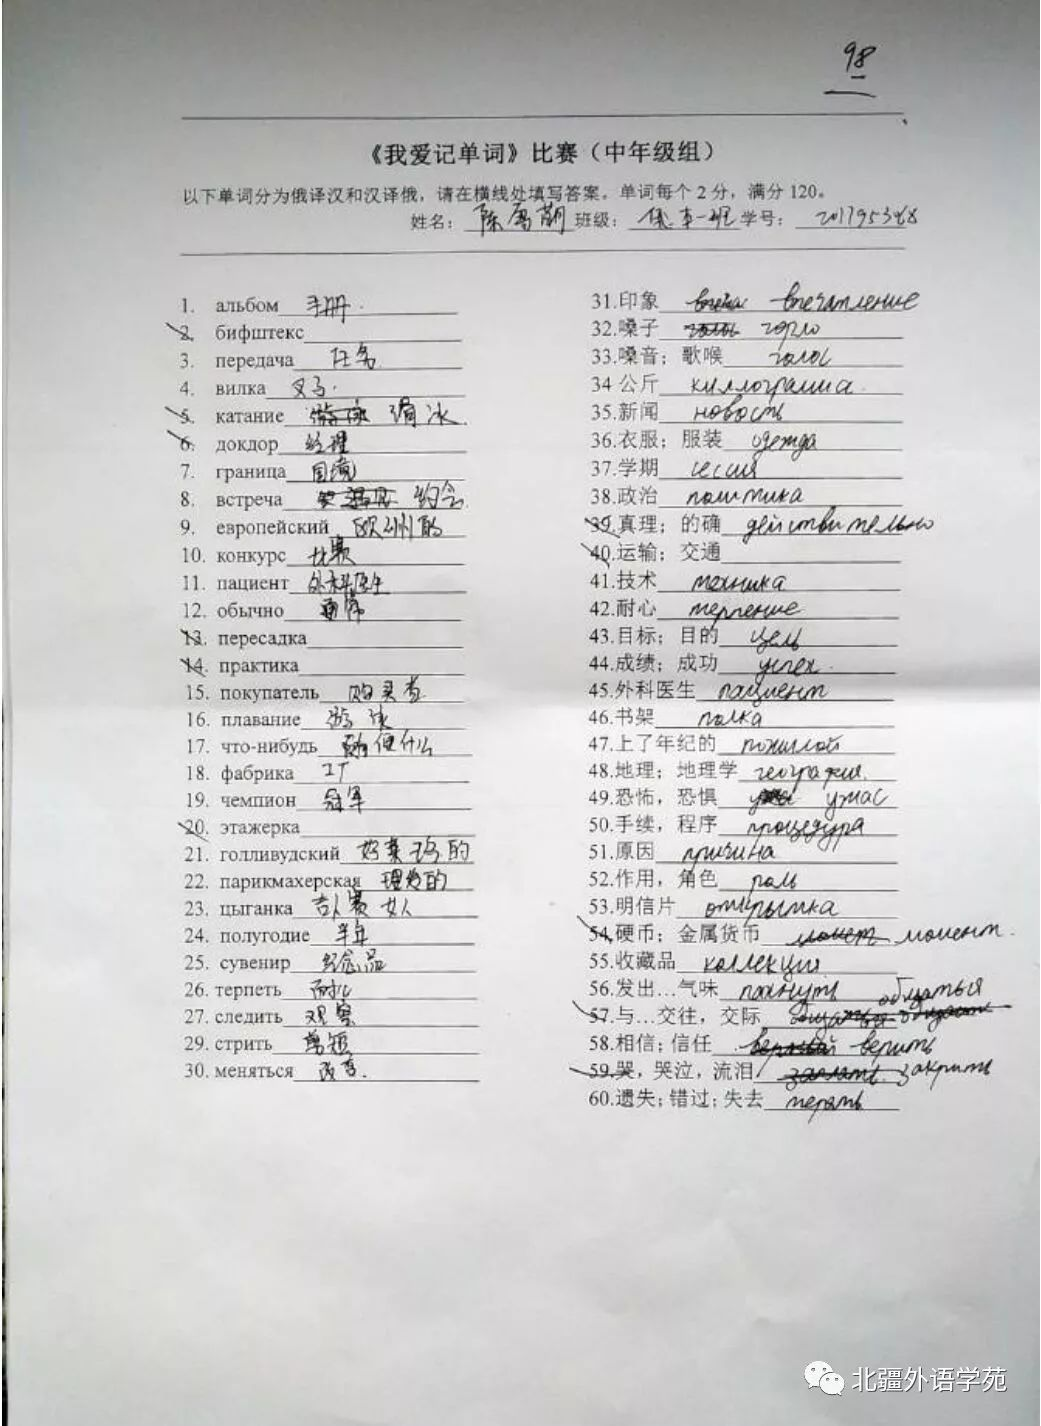 98
《我爱记单词》比赛（中年级组）
以下单词分为俄译汉和汉译俄，请在横线处填写答案。单词每个2分，满分120。
姓名： 班级： 学号：
1. альбом 手册
2. бифштекс
3. передача 任务
4. вилка 叉子
5. катание 滑冰
6. докдор 经理
7. граница 国境
8. встреча 约会
9. европейский 欧洲的
10. конкурс 比赛
11. пациент 外科医生
12. обычно 通常
13. пересадка
14. практика
15. покупатель 购买者
16. плавание 游泳
17. что-нибудь 随便什么
18. фабрика 工厂
19. чемпион 冠军
20. этажерка
21. голливудский 好莱坞的
22. парикмахерская 理发的
23. цыганка 吉卜赛女人
24. полугодие 半年
25. сувенир 纪念品
26. терпеть 耐心
27. следить 观察
29. стрить 剪短
30. меняться 改变
31.印象 впечатление
32.嗓子 горло
33.嗓音；歌喉 голос
34 公斤 киллограмма
35.新闻 новость
36.衣服；服装 одежда
37.学期 сессия
38.政治 политика
39.真理；的确 действительно
40.运输；交通
41.技术 техника
42.耐心 терпение
43.目标；目的 цель
44.成绩；成功 успех
45.外科医生 пациент
46.书架 полка
47.上了年纪的 пожилой
48.地理；地理学 география
49.恐怖，恐惧 ужас
50.手续，程序 процедура
51.原因 причина
52.作用，角色 роль
53.明信片 открытка
54.硬币；金属货币 момент
55.收藏品 коллекция
56.发出…气味 пахнуть
57.与…交往，交际 общаться
58.相信；信任 верить
59.哭，哭泣，流泪 закрить
60.遗失；错过；失去 терять
北疆外语学苑